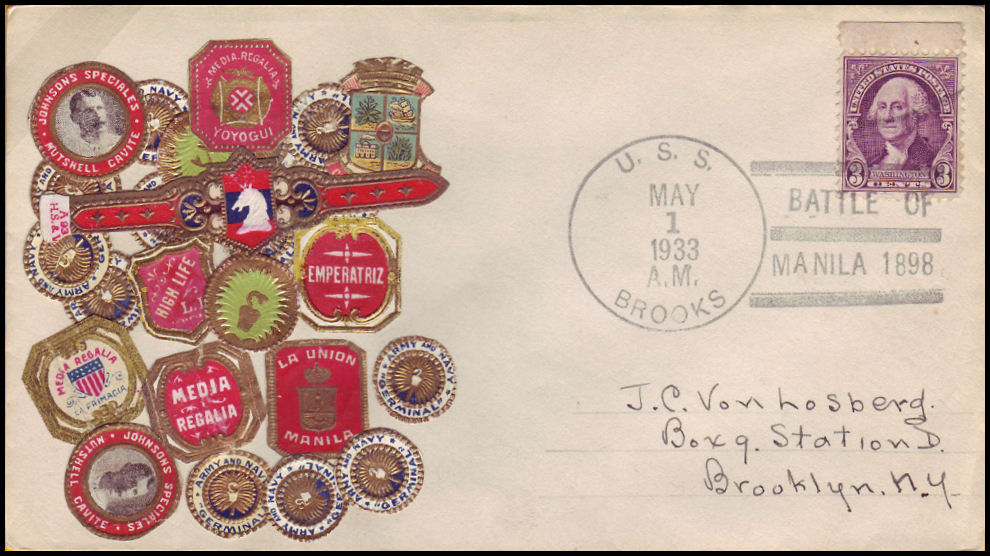 JOHNSONS SPECIALES
NUTSHELL CAVITE
MEDIA REGALIA
YOYOGUI
ARMY AND NAVY
A 93
H.S. &
ARMY AND NAVY
HIGH LIFE
EMPERATRIZ
MEDIA REGALIA
LA PRIMACIA
MEDIA
REGALIA
LA UNION
MANILA
ARMY AND NAVY
"GERMINAL"
JOHNSONS SPECIALES
NUTSHELL CAVITE
ARMY AND NAVY
"GERMINAL"
ARMY AND NAVY
"GERMINAL"
ARMY AND NAVY
"GERMINAL"
U. S. S.
MAY
1
1933
A.M.
BROOKS
BATTLE OF
MANILA 1898
UNITED STATES POSTAGE
3 WASHINGTON 3
CENTS
J.C. Von Losberg.
Box 9. Station D.
Brooklyn. N.Y.